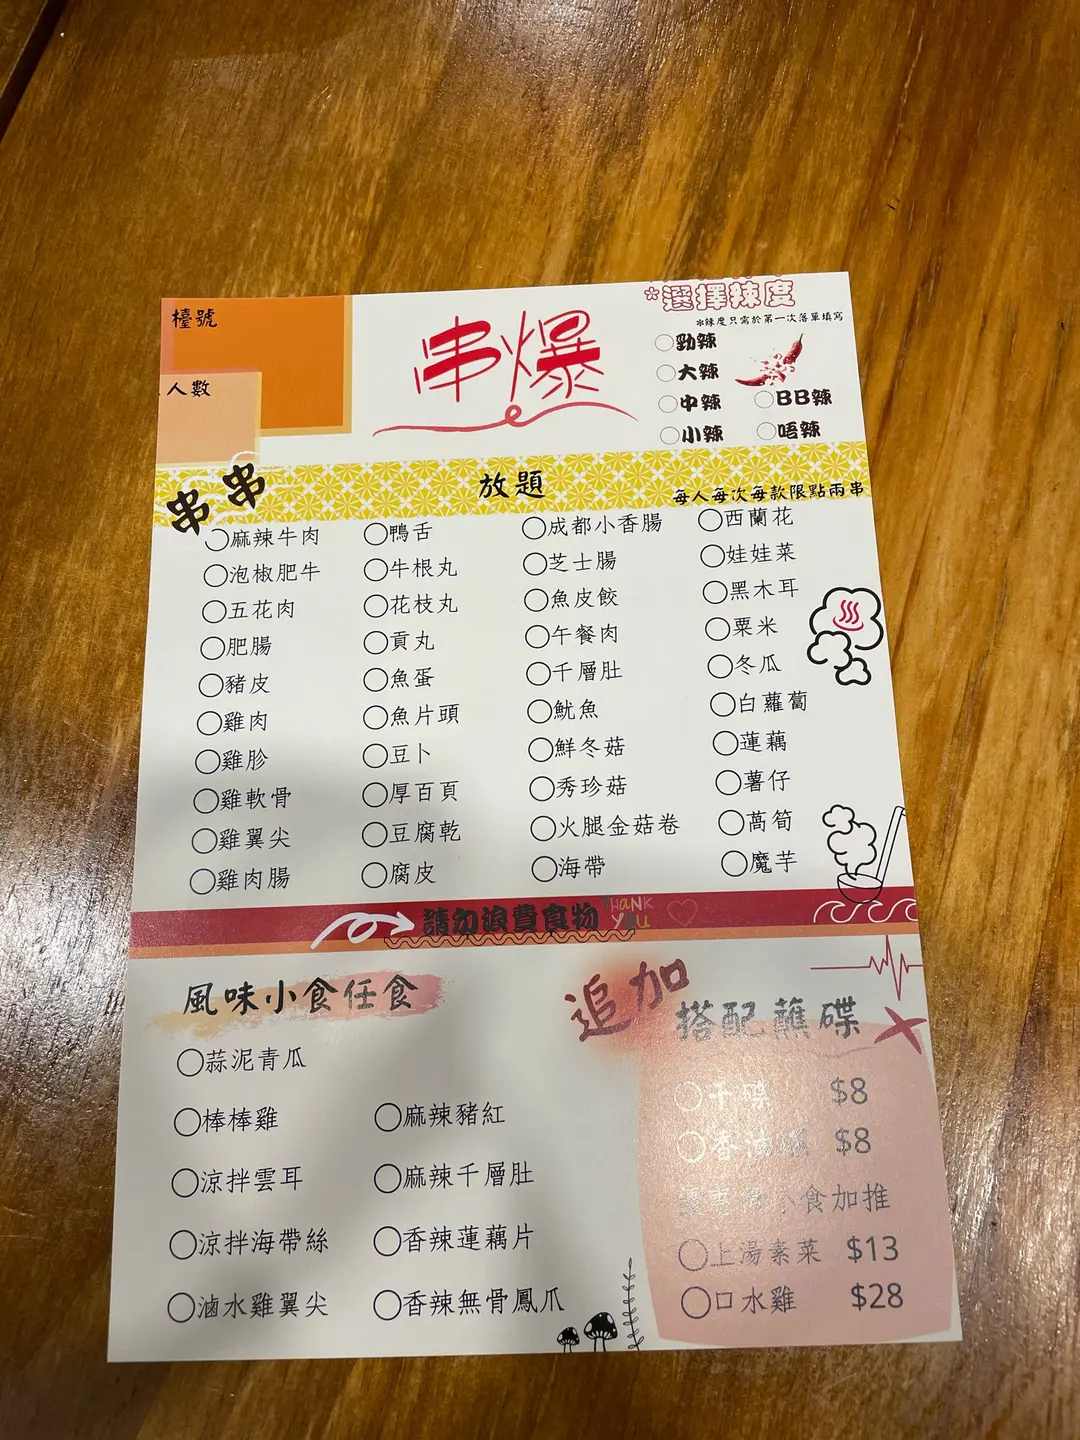 檯號
人數
串爆
*選擇辣度
*辣度只需於第一次落單填寫
勁辣
大辣
中辣
BB辣
小辣
唔辣
串串
放題
每人每次每款限點兩串
麻辣牛肉
泡椒肥牛
五花肉
肥腸
豬皮
雞肉
雞胗
雞軟骨
雞翼尖
雞肉腸
鴨舌
牛根丸
花枝丸
貢丸
魚蛋
魚片頭
豆卜
厚百頁
豆腐乾
腐皮
成都小香腸
芝士腸
魚皮餃
午餐肉
千層肚
魷魚
鮮冬菇
秀珍菇
火腿金菇卷
海帶
西蘭花
娃娃菜
黑木耳
粟米
冬瓜
白蘿蔔
蓮藕
薯仔
萵筍
魔芋
請勿浪費食物
THANK
YOU
風味小食任食
蒜泥青瓜
棒棒雞
涼拌雲耳
涼拌海帶絲
滷水雞翼尖
麻辣豬紅
麻辣千層肚
香辣蓮藕片
香辣無骨鳳爪
追加
搭配蘸碟
干碟 $8
香油碟 $8
小食加推
上湯素菜 $13
口水雞 $28